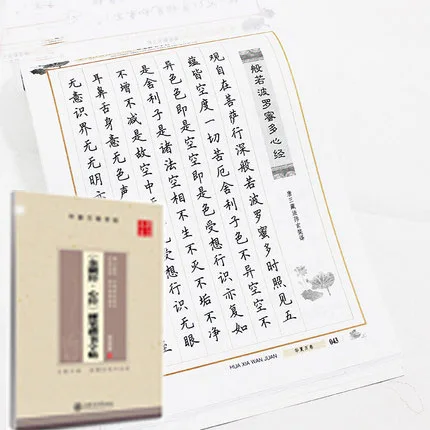 般若波罗蜜多心经
唐三藏法师玄奘译
观自在菩萨行深般若波罗蜜多时照见五
蕴皆空度一切苦厄舍利子色不异空空不
异色色即是空空即是色受想行识亦复如
是舍利子是诸法空相不生不灭不垢不净
不增不减是故空中无色无受想行识无眼
耳鼻舌身意无色声
无意识界无无明
HUA XIA WAN JUAN
华夏万卷
043
《金刚经·心经》硬笔楷书字帖